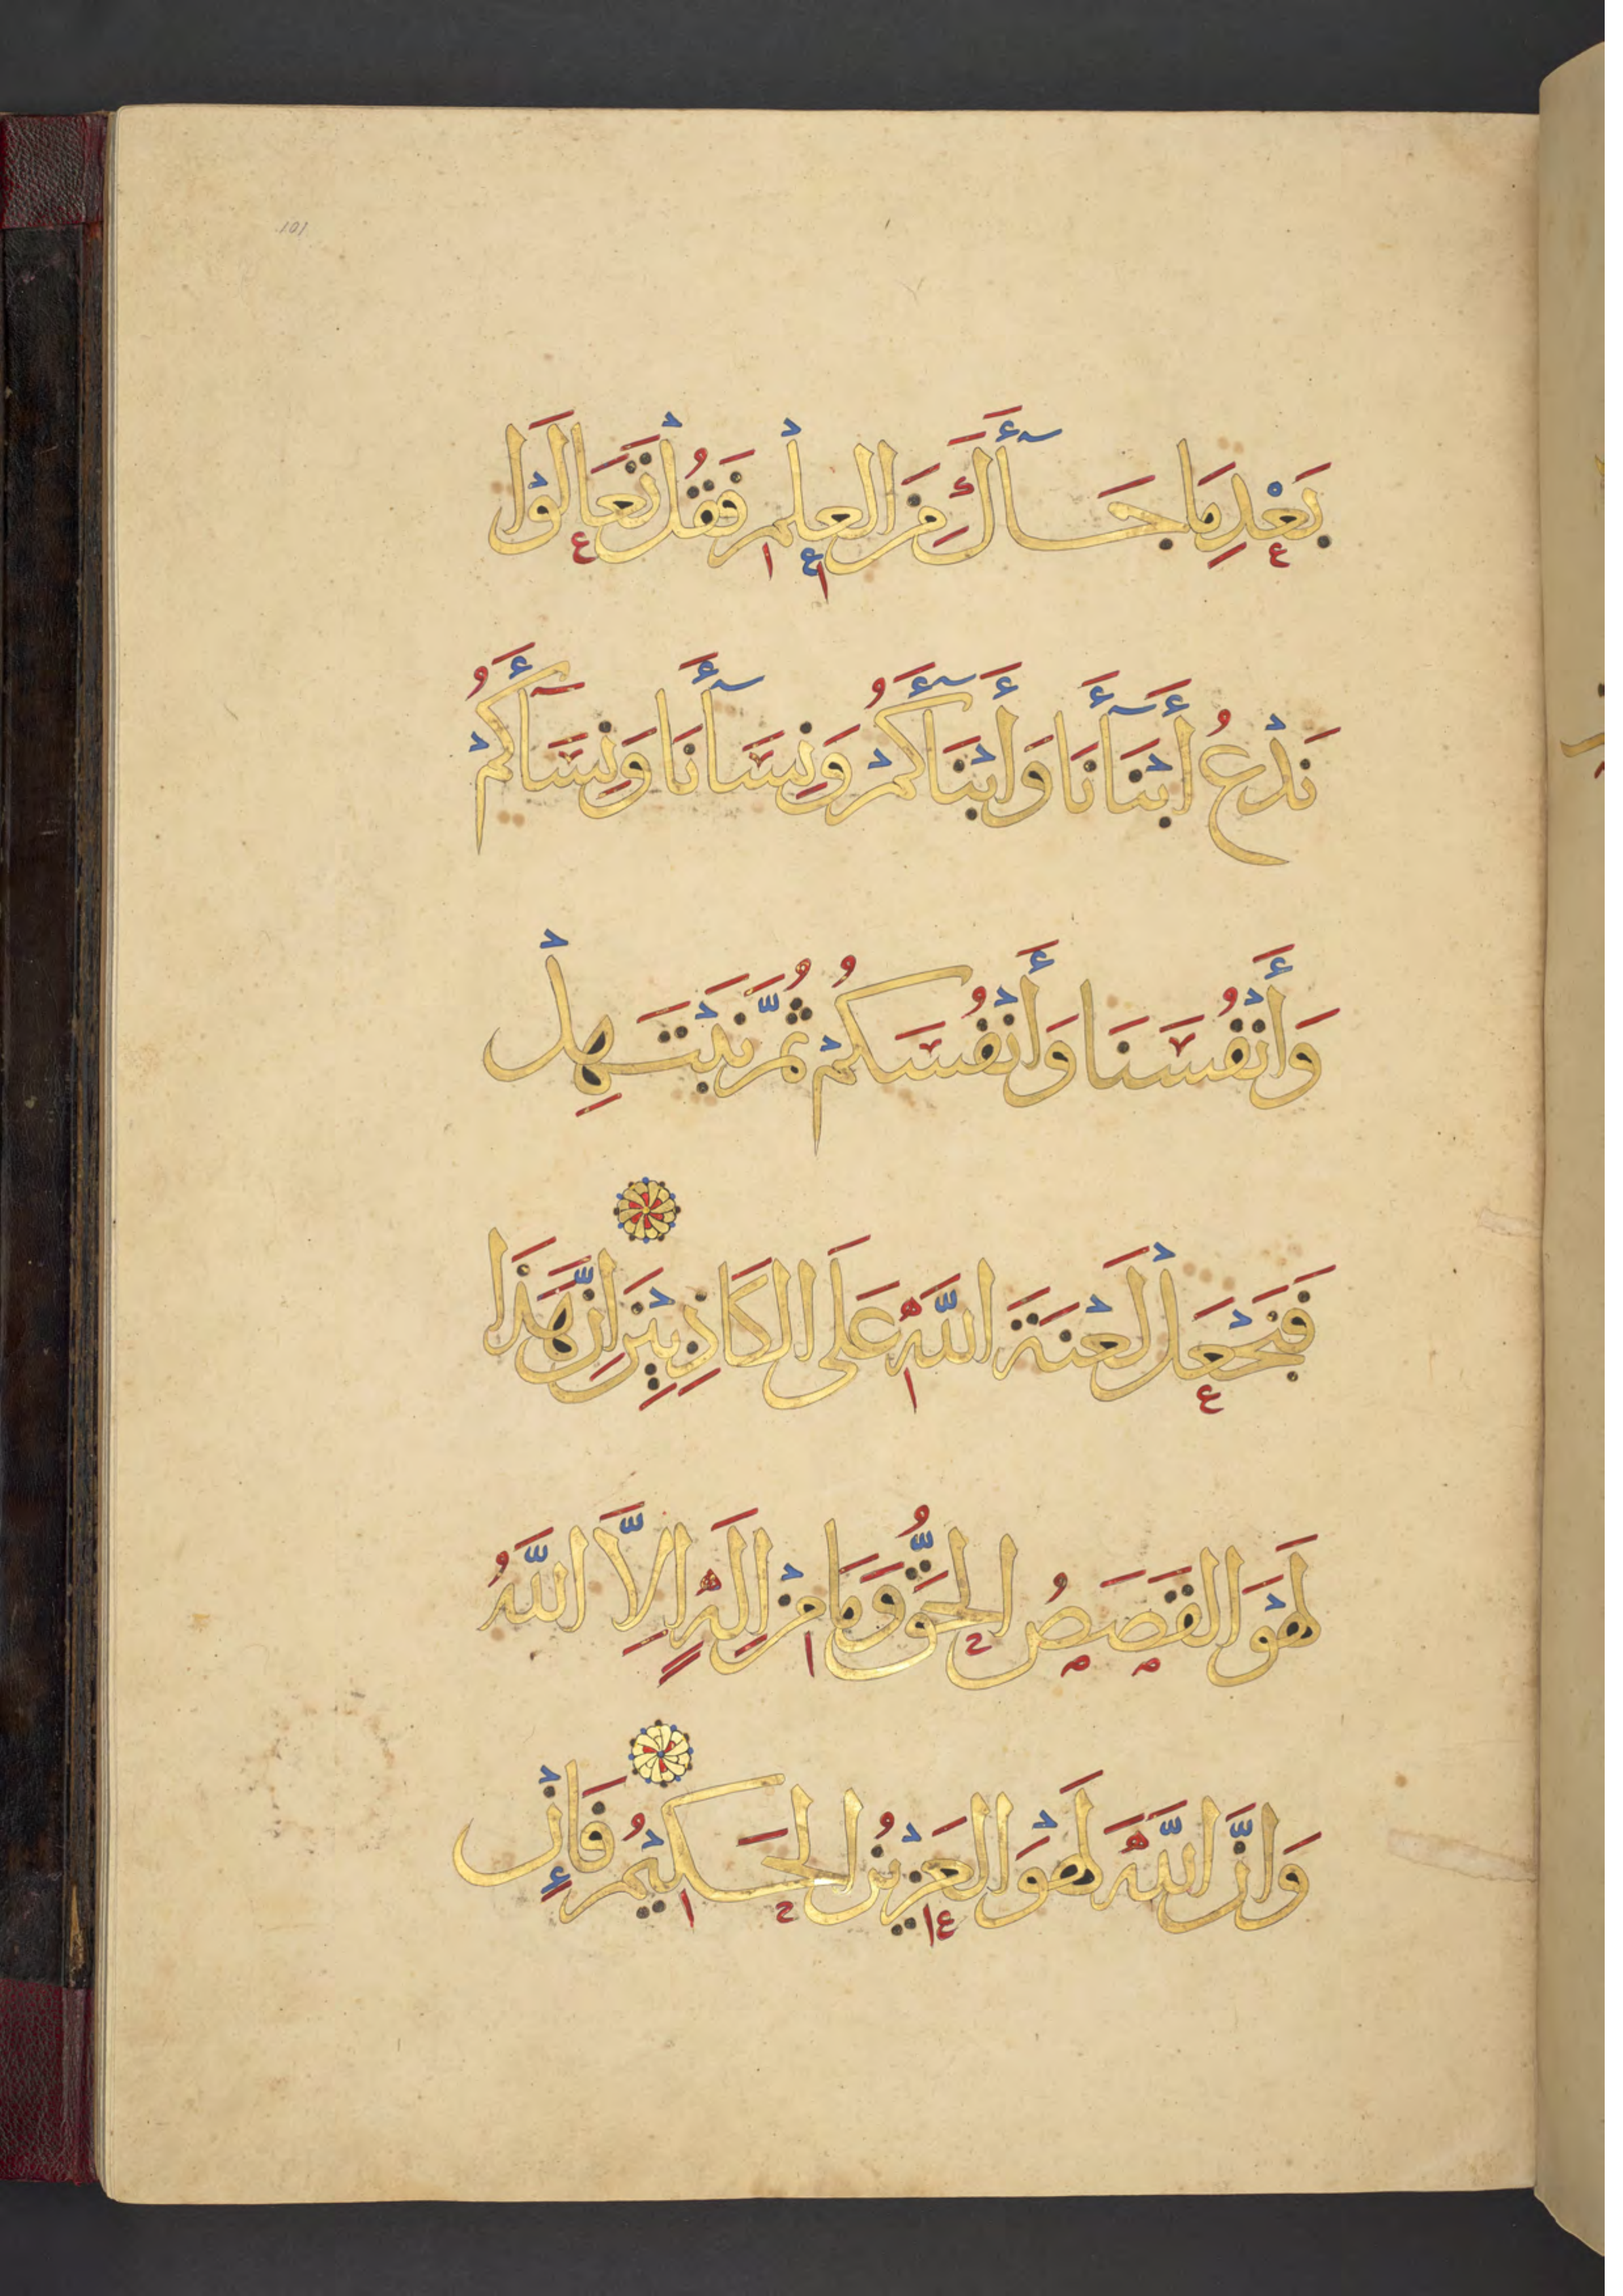 101
بَعْدِ مَا جَآأَكَ مِنَ العِلْمِ فَقُلْ تَعَالَوْا
نَدْعُ أَبْنَآأَنَا وَأَبْنَآأَكُمْ وَنِسَآأَنَا وَنِسَآأَكُمْ
وَأَنْفُسَنَا وَأَنْفُسَكُمْ ثُمَّ نَبْتَهِلْ
فَنَجْعَلْ لَعْنَةَ اللَّهِ عَلَى الكَاذِبِيْنَ اِنَّ هَذَا
لَهْوَ القَصَصُ الحَقُّ وَمَا مِنْ اِلَهٍ اِلاَّ اللَّهُ
وَاِنَّ اللَّهَ لَهْوَ العَزِيْزُ الحَكِيْمُ فَإِنْ